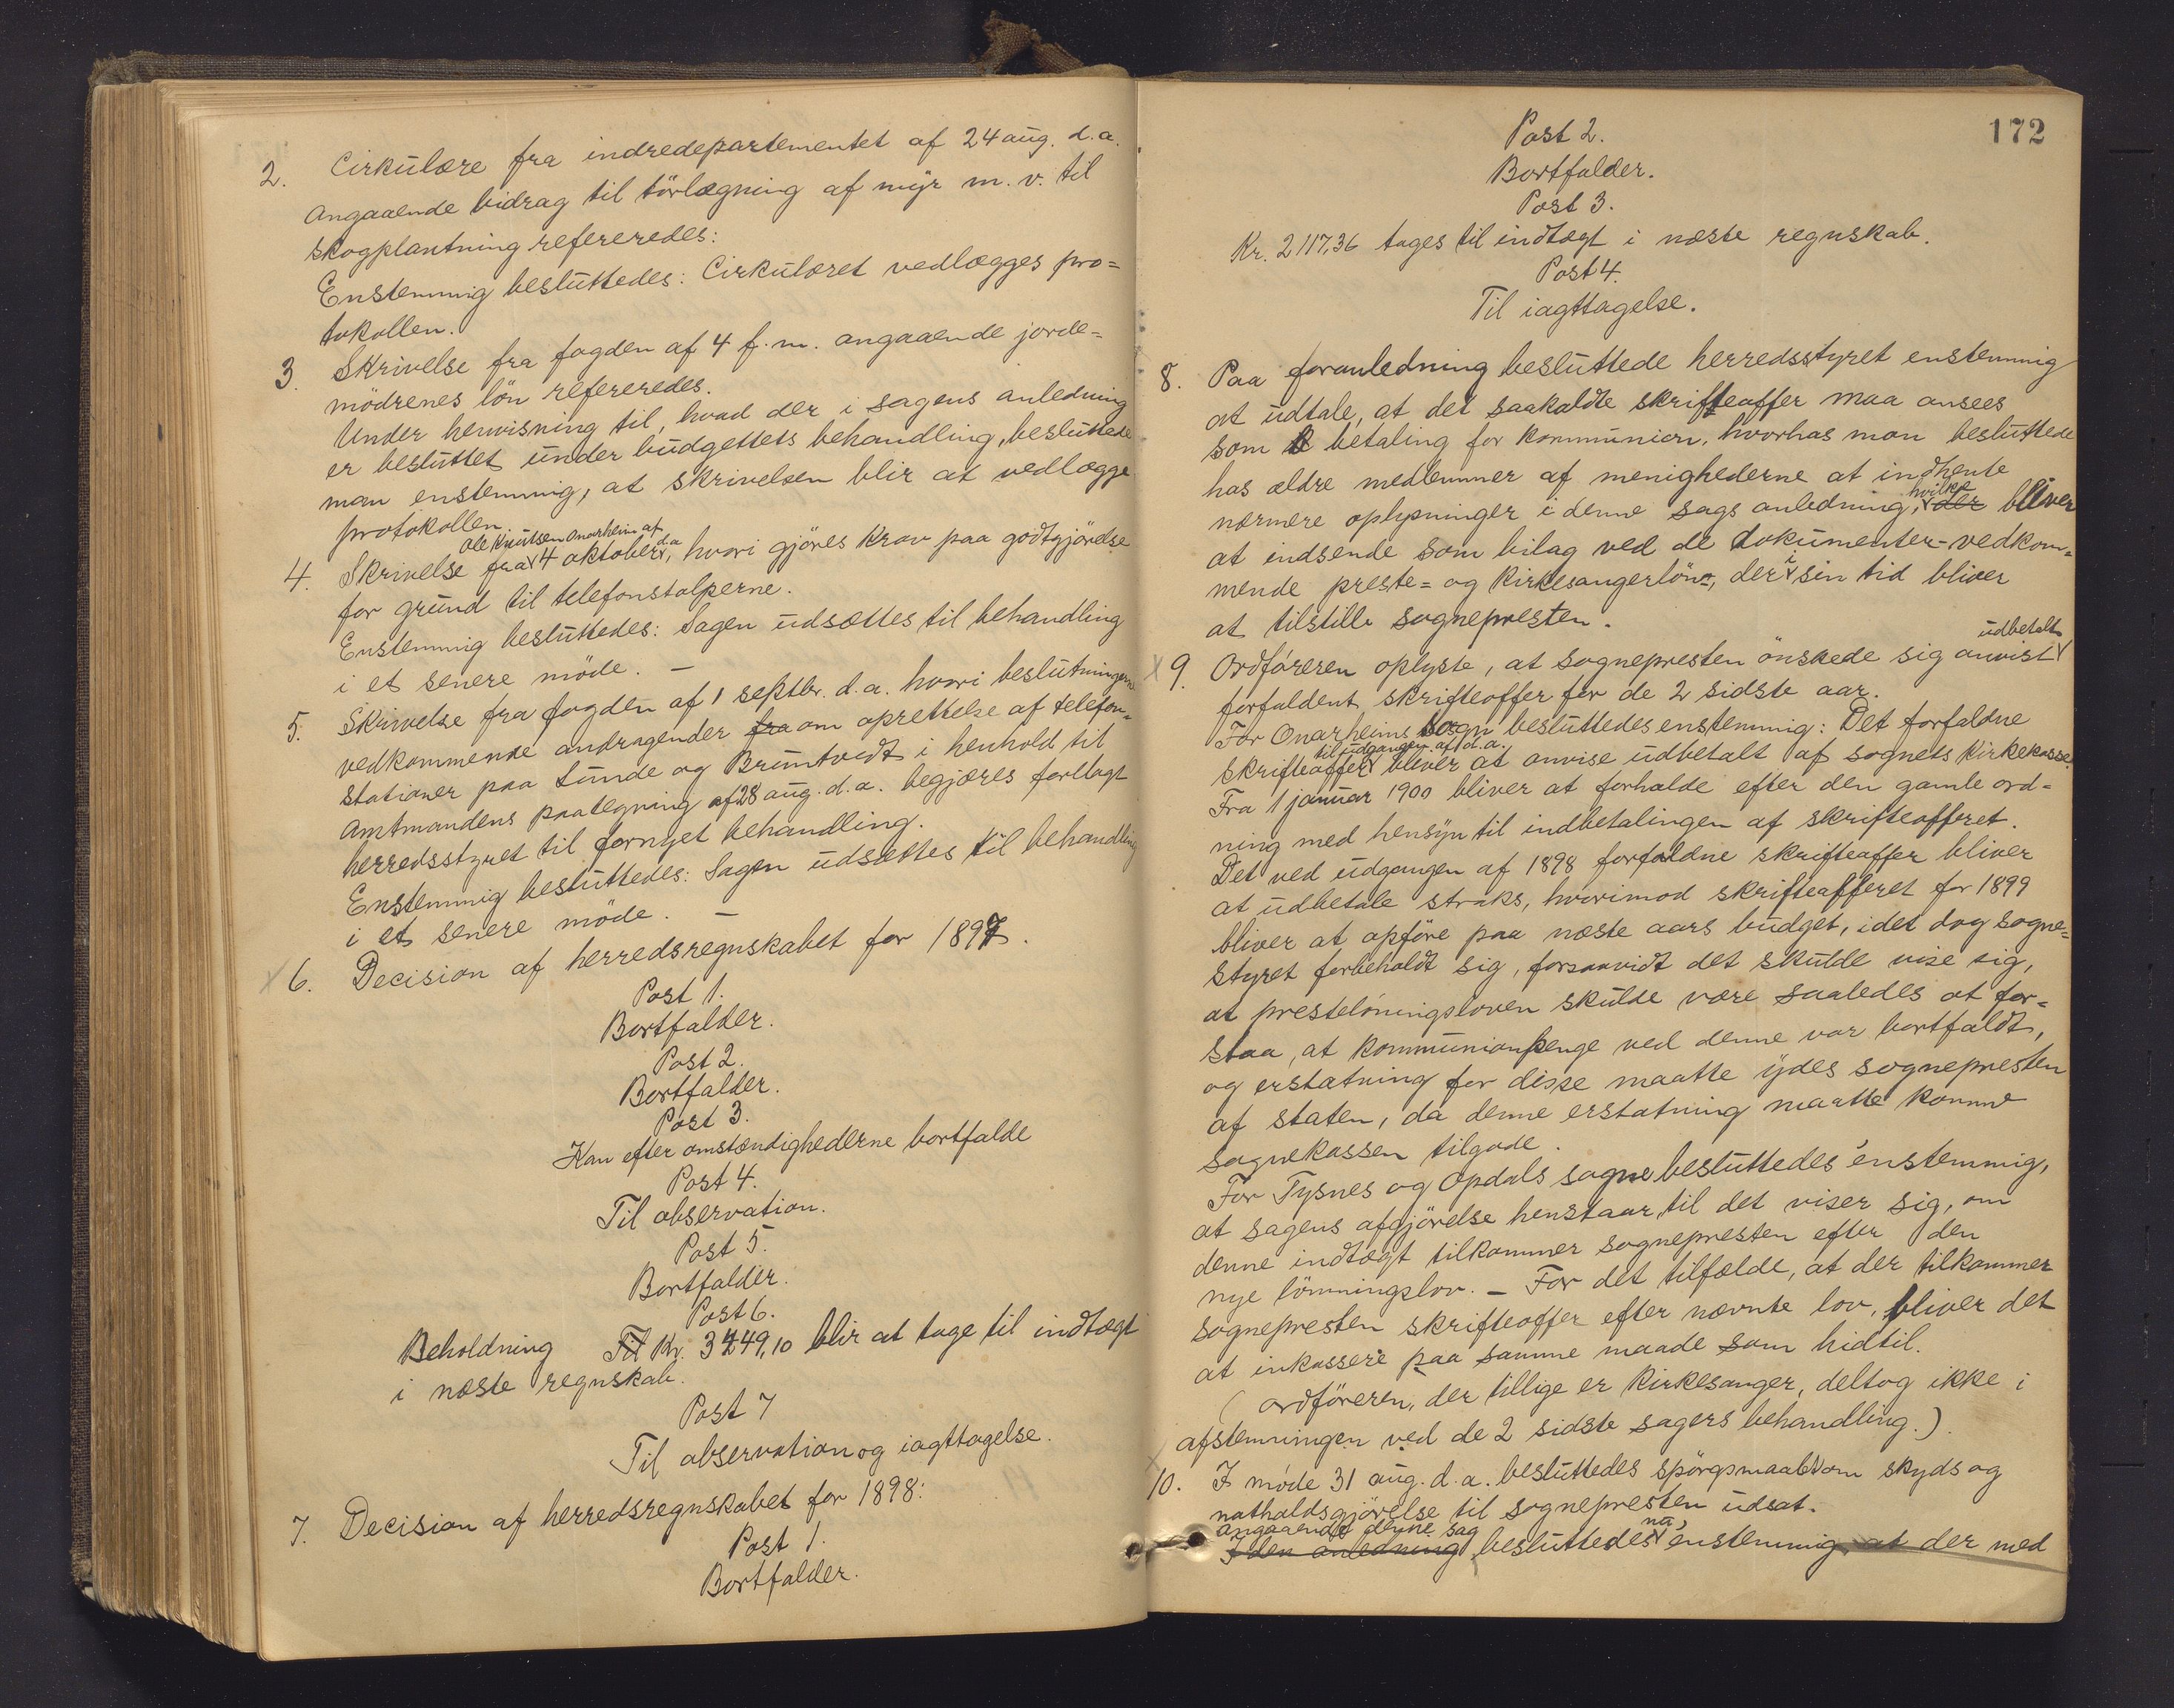 2. Cirkulære fra indredepartementet af 24 aug. d.a.
angaaende bidrag til törlægning af myr m.v. til
skogplantning refereredes:
Enstemmig besluttedes: Cirkulæret vedlægges pro=
tokollen.
3. Skrivelse fra fogden af 4 f.m. angaaende jorde=
mödrenes lön refereredes.
Under henvisning til, hvad der i sagens anledning
er besluttet under budgettets behandling, besluttede
man enstemmig, at skrivelsen blir at vedlægge
protokollen.
Ole Knutsen Onarheim af
4. Skrivelse fra 4 oktober d.a, hvori gjöres krav paa godtgjörelse
for grund til telefonstolperne.
Enstemmig besluttedes: Sagen udsættes til behandling
i et senere möde. –
5. Skrivelse fra fogden af 1 septbr. d.a. hvori beslutningerne
vedkommende andragender fra om oprettelse af telefon=
stationer paa Lunde og Bruntvedt i henhold til
amtmandens paategning af 28 aug. d.a. begjæres forelagt
herredsstyret til fornyet behandling.
Enstemmig besluttedes: Sagen udsættes til behandling
i et senere möde. –
X 6. Decision af herredsregnskabet for 1897.
Post 1.
Bortfalder.
Post 2.
Bortfalder.
Post 3.
Kan efter omstændighederne bortfalde
Post 4.
Til observation.
Post 5.
Bortfalder.
Post 6.
Beholdning Til Kr. 3249,10 blir at tage til indtægt
i næste regnskab.
Post 7
Til observation og iagttagelse.
7. Decision af herredsregnskabet for 1898:
Post 1.
Bortfalder.
172
Post 2.
Bortfalder.
Post 3.
Kr. 2117,36 tages til indtægt i næste regnskab.
Post 4.
Til iagttagelse.
8. Paa foranledning besluttede herredsstyret enstemmig
at udtale, at det saakaldte skrifteoffer maa ansees
som betaling for kommunion, hvorhos man besluttede
hos ældre medlemmer af menighederne at indhente
nærmere oplysninger i denne sags anledning, hvilke der bliver
at indsende som bilag ved de dokumenter vedkom=
mende preste= og kirkesangerlön, der i sin tid bliver
at tilstille sognepresten.
X 9. Ordföreren oplyste, at sognepresten önskede sig anvist udbetalt
forfaldent skrifteoffer for de 2 sidste aar.
For Onarheims sogn besluttedes enstemmig: Det forfaldne
til udgangen af d.a.
skrifteoffer bliver at anvise udbetalt af sognets kirkekasse.
Fra 1 januar 1900 bliver at forholde efter den gamle ord=
ning med hensyn til indbetalingen af skrifteofferet.
Det ved udgangen af 1898 forfaldne skrifteoffer bliver
at udbetale straks, hvorimod skrifteofferet for 1899
bliver at opföre paa næste aars budget, idet dog sogne=
styret forbeholdt sig, forsaavidt det skulde vise sig,
at presteløningsloven skulde være saaledes at for=
staa, at kommunionpenge ved denne var bortfaldt,
og erstatning for disse maatte ydes sognepresten
af staten, da denne erstatning maatte komme
sognekassen tilgode.
For Tysnes og Opdals sogne besluttedes enstemmig,
at sagens afgjörelse henstaar, til det viser sig, om
denne indtægt tilkommer sognepresten efter den
nye lönningslov. – For det tilfælde, at der tilkommer
sognepresten skrifteoffer efter nævnte lov, bliver det
at inkassere paa samme maade som hidtil.
(Ordföreren, der tillige er kirkesanger, deltog ikke i
afstemningen ved de 2 sidste sagers behandling.)
X 10. I møde 31 aug. d.a. besluttedes spörgsmaalet om skyds og
natholdsgjörelse til sognepresten udsat.
angaaende denne sag
I den anledning besluttedes nu, enstemmig, at der med